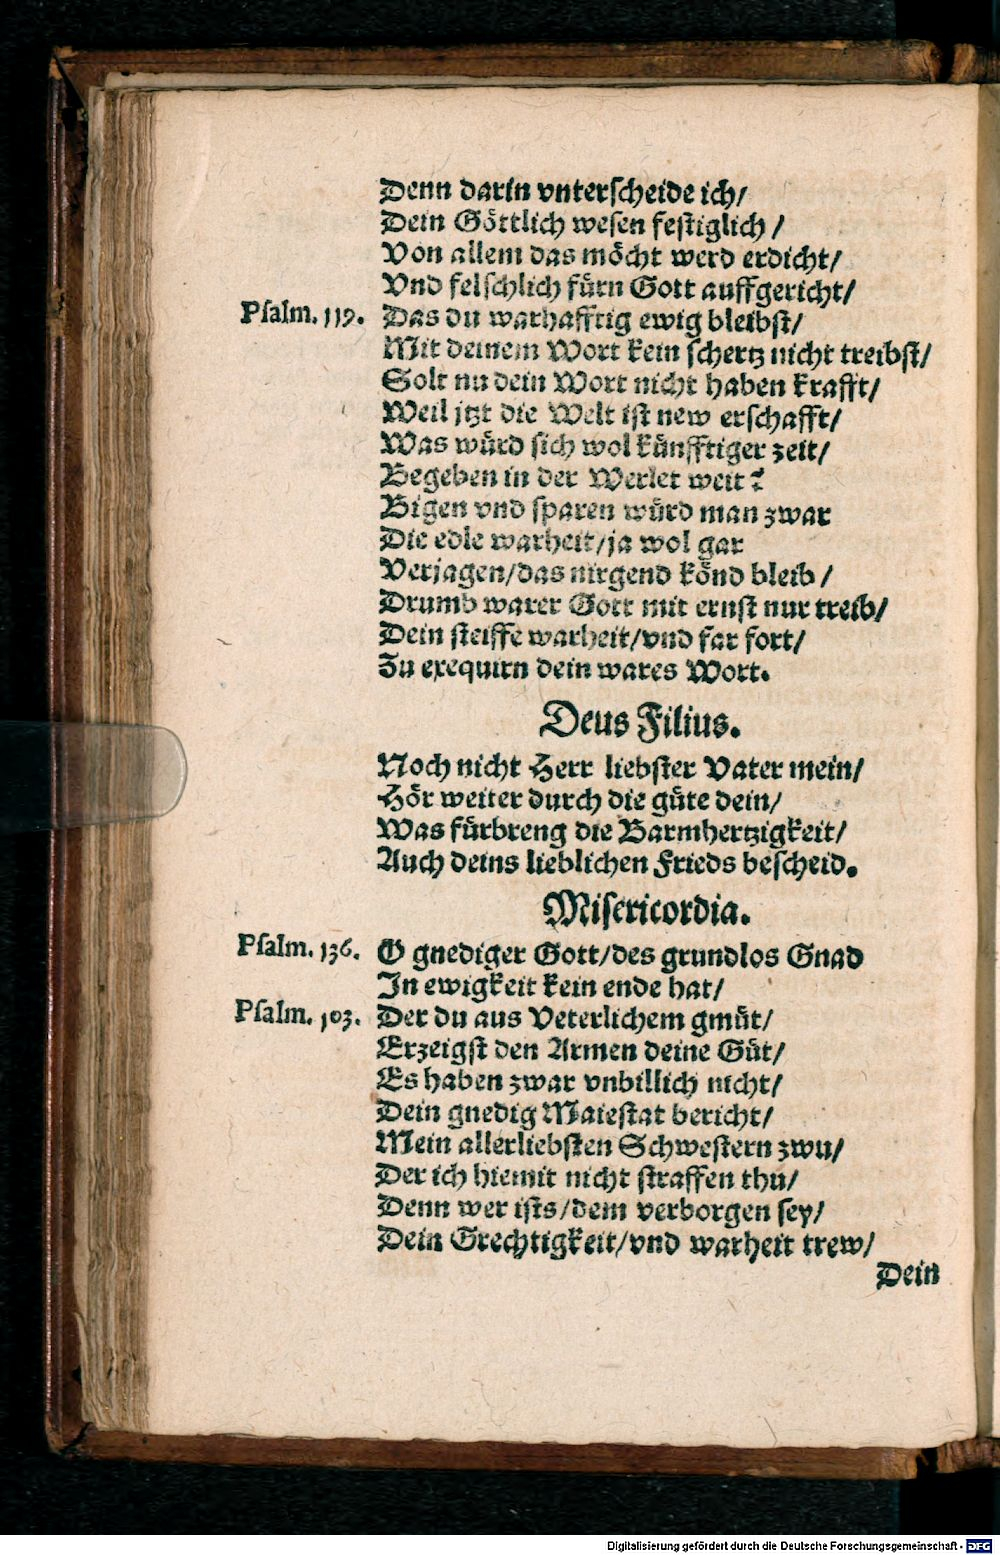 Denn darin vnterscheide ich/
Dein Göttlich wesen festiglich/
Von allem das möcht werd erdicht/
Vnd felschlich fürn Gott auffgericht/
Psalm. 119. Das du warhafftig ewig bleibst/
Mit deinem Wort kein schertz nicht treibst/
Solt nu dein Wort nicht haben krafft/
Weil jtzt die Welt ist new erschafft/
Was würd sich wol künfftiger zeit/
Begeben in der Werlet weit?
Bigen vnd sparen würd man zwar
Die edle warheit/ja wol gar
Verjagen/das nirgend könd bleib/
Drumb warer Gott mit ernst nur treib/
Dein steiffe warheit/vnd far fort/
Zu exequirn dein wares Wort.
Deus Filius.
Noch nicht Herr liebster Vater mein/
Hör weiter durch die güte dein/
Was fürbreng die Barmhertzigkeit/
Auch deins lieblichen Frieds bescheid.
Misericordia.
Psalm. 136. O gnediger Gott/des grundlos Gnad
In ewigkeit kein ende hat/
Psalm. 103. Der du aus Veterlichem gmüt/
Erzeigst den Armen deine Güt/
Es haben zwar vnbillich nicht/
Dein gnedig Maiestat bericht/
Mein allerliebsten Schwestern zwu/
Der ich hiemit nicht straffen thu/
Denn wer ists/dem verborgen sey/
Dein Grechtigkeit/vnd warheit trew/
Dein
Digitalisierung gefördert durch die Deutsche Forschungsgemeinschaft - DFG